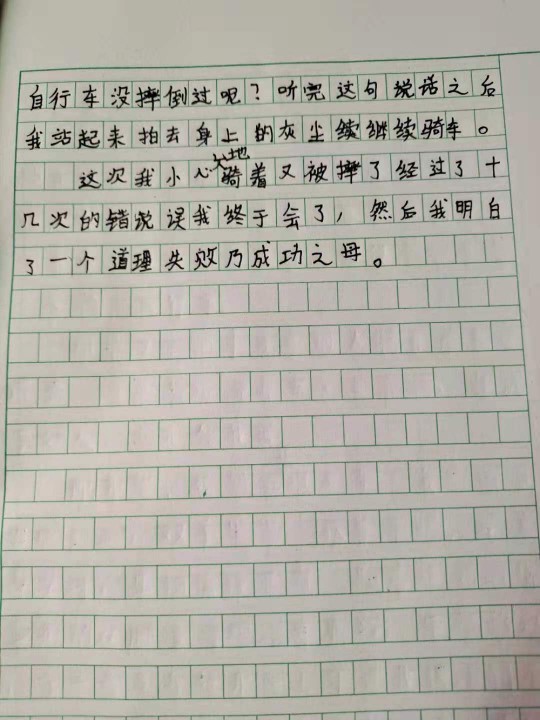 自行车没摔倒过呢？听完这句说话之后
我站起来拍去身上的灰尘续继续骑车。
这次我小心地骑着又被摔了经过了十
几次的错说误我终于会了，然后我明白
了一个道理失败乃成功之母。